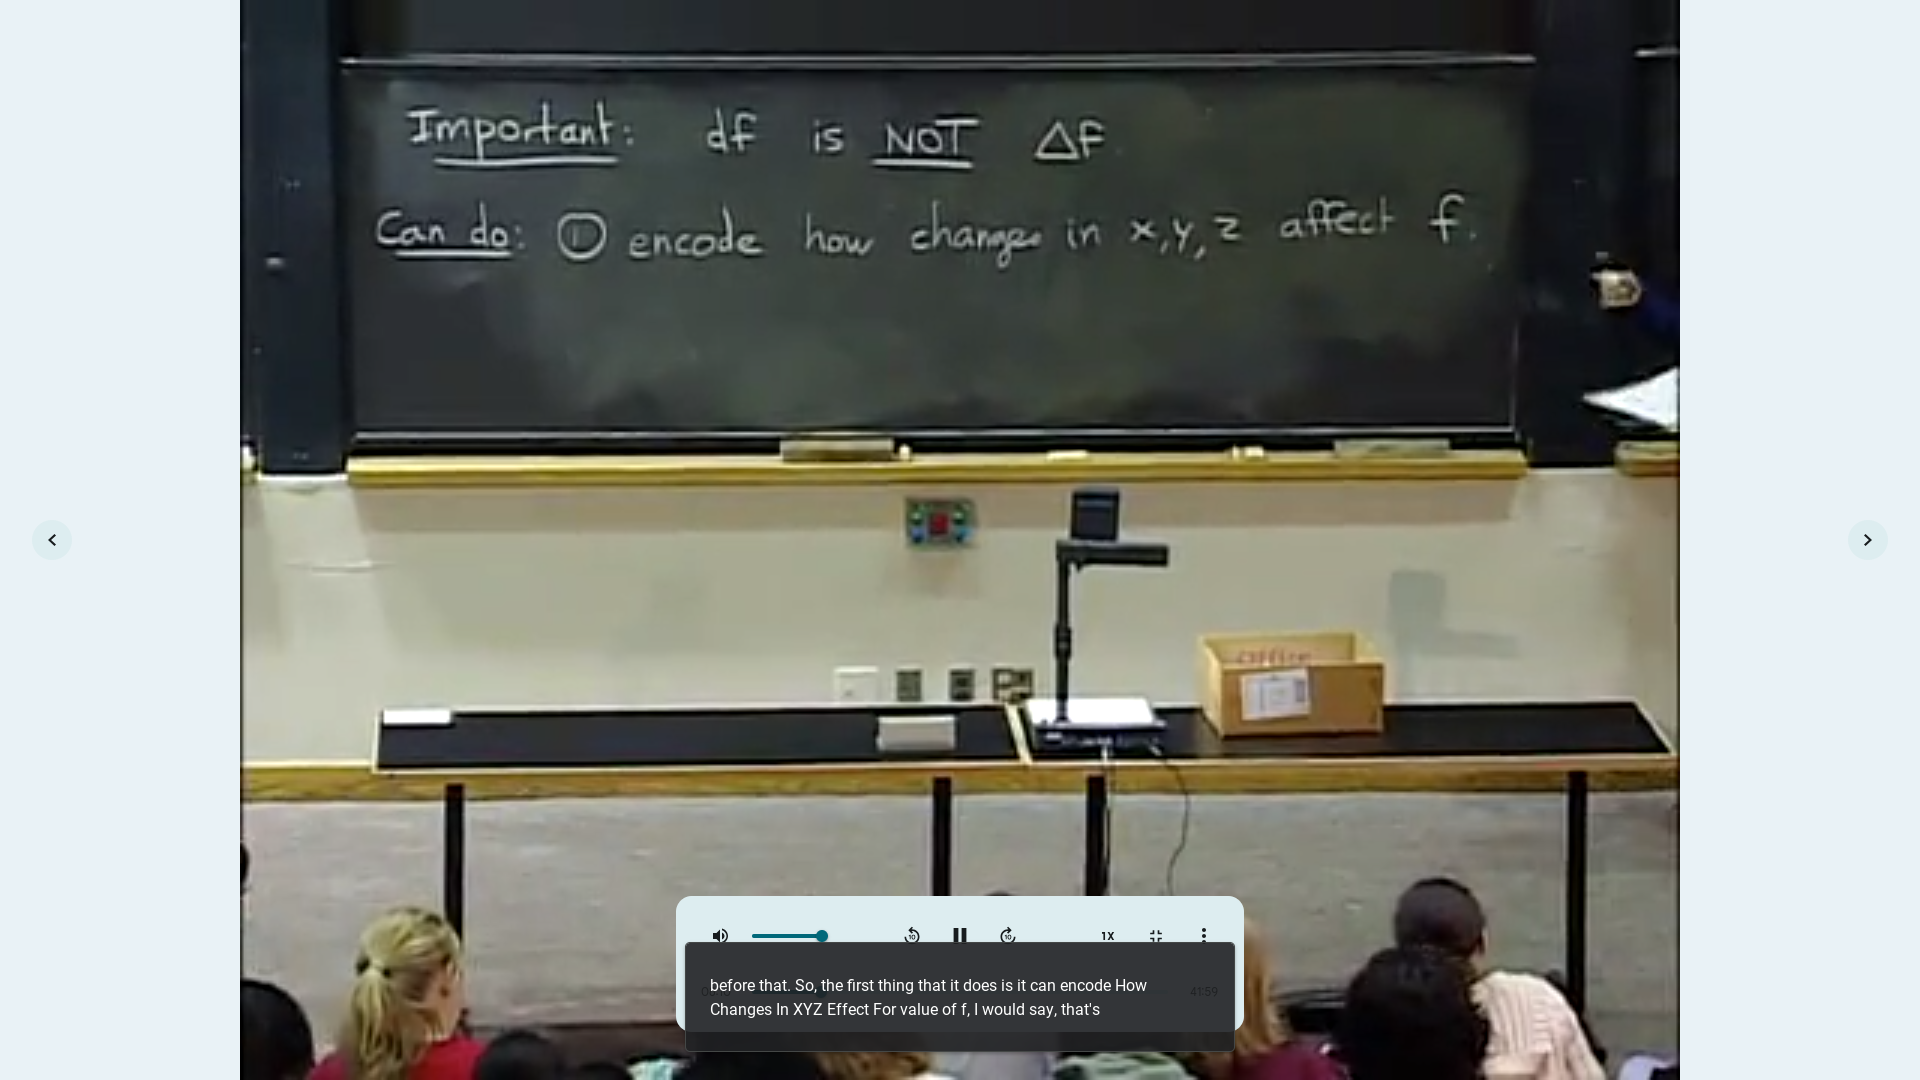 Important: df is NOT Δf
Can do: ① encode how changes in x,y,z affect f.
Office
10 10 1X
41:59
before that. So, the first thing that it does is it can encode How
Changes In XYZ Effect For value of f, I would say, that's